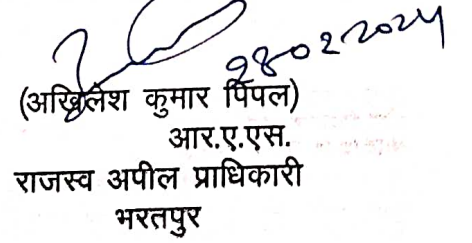 28-02-2024
(अखिलेश कुमार पिंपल)
आर.ए.एस.
राजस्व अपील प्राधिकारी
भरतपुर